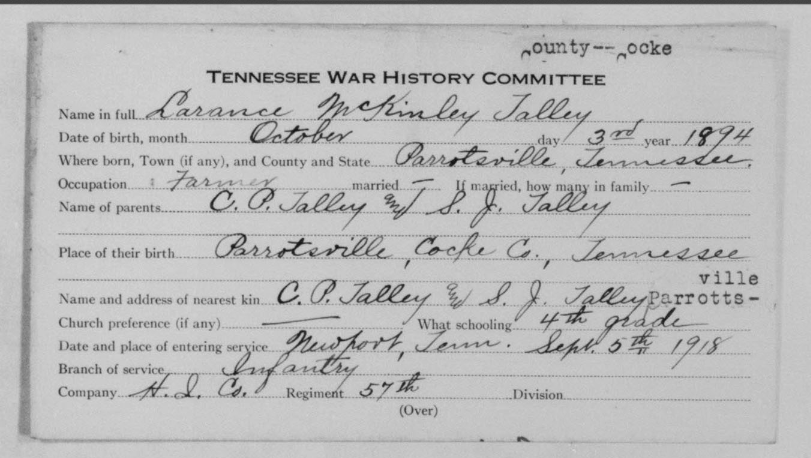 County--Cocke
TENNESSEE WAR HISTORY COMMITTEE
Name in full Larance McKinley Talley
Date of birth, month October day 3rd year 1894
Where born, Town (if any), and County and State Parrotsville, Tennessee.
Occupation Farmer married — If married, how many in family —
Name of parents C. P. Talley and S. J. Talley
Place of their birth Parrotsville, Cocke Co., Tennessee
ville
Name and address of nearest kin C. P. Talley and S. J. Talley Parrotts-
Church preference (if any) — What schooling 4th grade
Date and place of entering service Newport, Tenn. Sept. 5th 1918
Branch of service Infantry
Company H. I. Co. Regiment 57th Division
(Over)